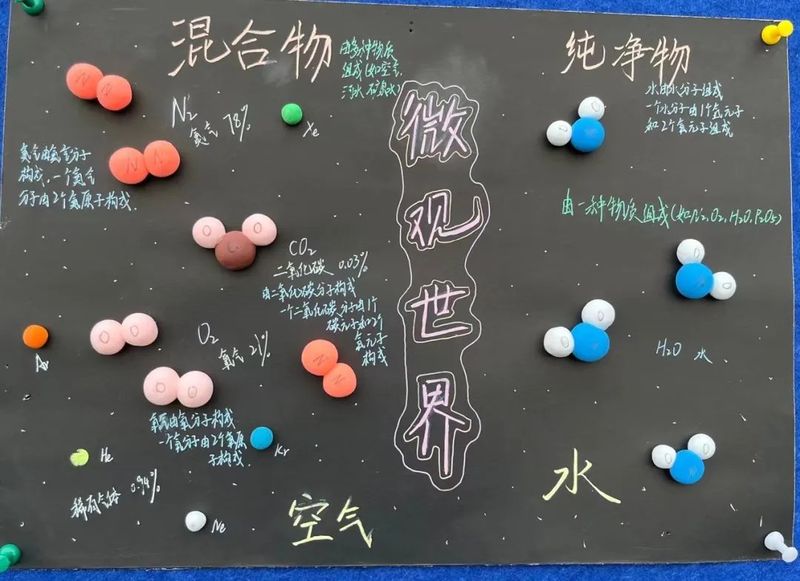 混合物
由多种物质
组成(如空气,
污水,矿泉水)
纯净物
水由水分子组成
一个水分子由1个氧元子
和2个氢元子组成
N2
氮气 78%
Xe
氮气由氮气分子
构成,一个氮气
分子由2个氮原子构成.
N N
N N
微
观
世
界
由一种物质组成(如N2,O2,H2O,P2O5)
O C O
CO2
二氧化碳 0.03%
由二氧化碳分子构成
一个二氧化碳分子由1个
碳元子和2个
氧元子
构成
O O
O2
氧气 21%
Ar
N N
O O
氧气由氧分子构成
一个氧分子由2个氧原
子构成
Kr
H2O 水
He
稀有气体 0.94%
Ne
空气
水